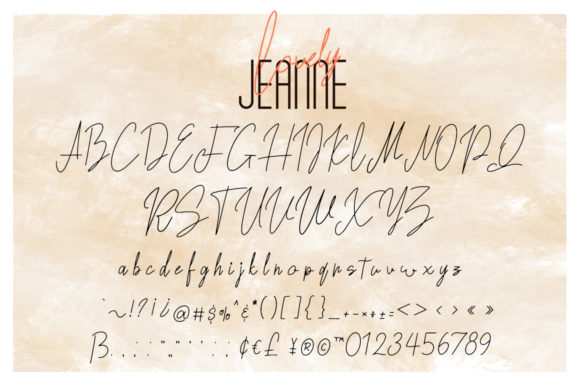 Lovely
JEANNE
ABCDEFGHIJKLMNOPQ
RSTUVWXYZ
abcdefghijklnopqrstuvwxyz
`~!?¡¿@#$%^&*()[]{}_+-×+±=<>‹›«»
ß ¢€£¥®©™0123456789